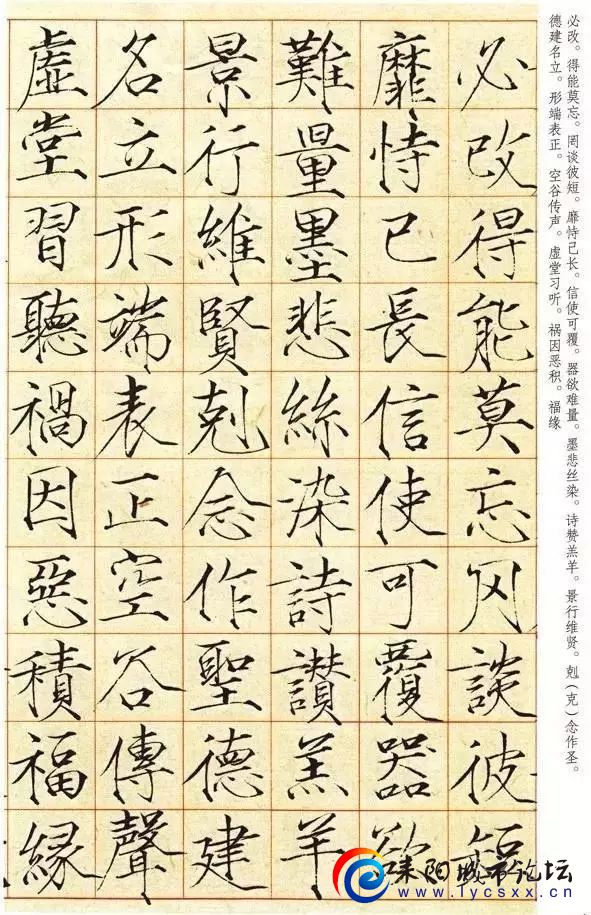 必改。得能莫忘。罔谈彼短。靡恃己长。信使可覆。器欲难量。墨悲丝染。诗赞羔羊。景行维贤。剋（克）念作圣。
德建名立。形端表正。空谷传声。虚堂习听。祸因恶积。福缘
必改得能莫忘罔談彼短
靡恃己長信使可覆器欲
難量墨悲絲染詩讃羔羊
景行維賢剋念作聖德建
名立形端表正空谷傳聲
虛堂習聽禍因惡積福緣
耒阳城市论坛
www.lycsxx.cn